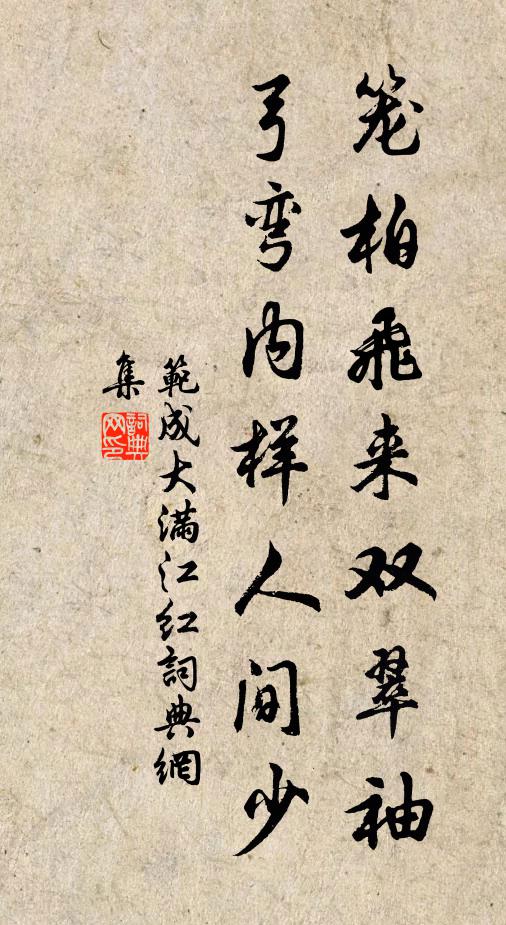 笼柏飛来双翠袖
弓弯内样人间少
範成大满江红詞典網
集
詞典
网印